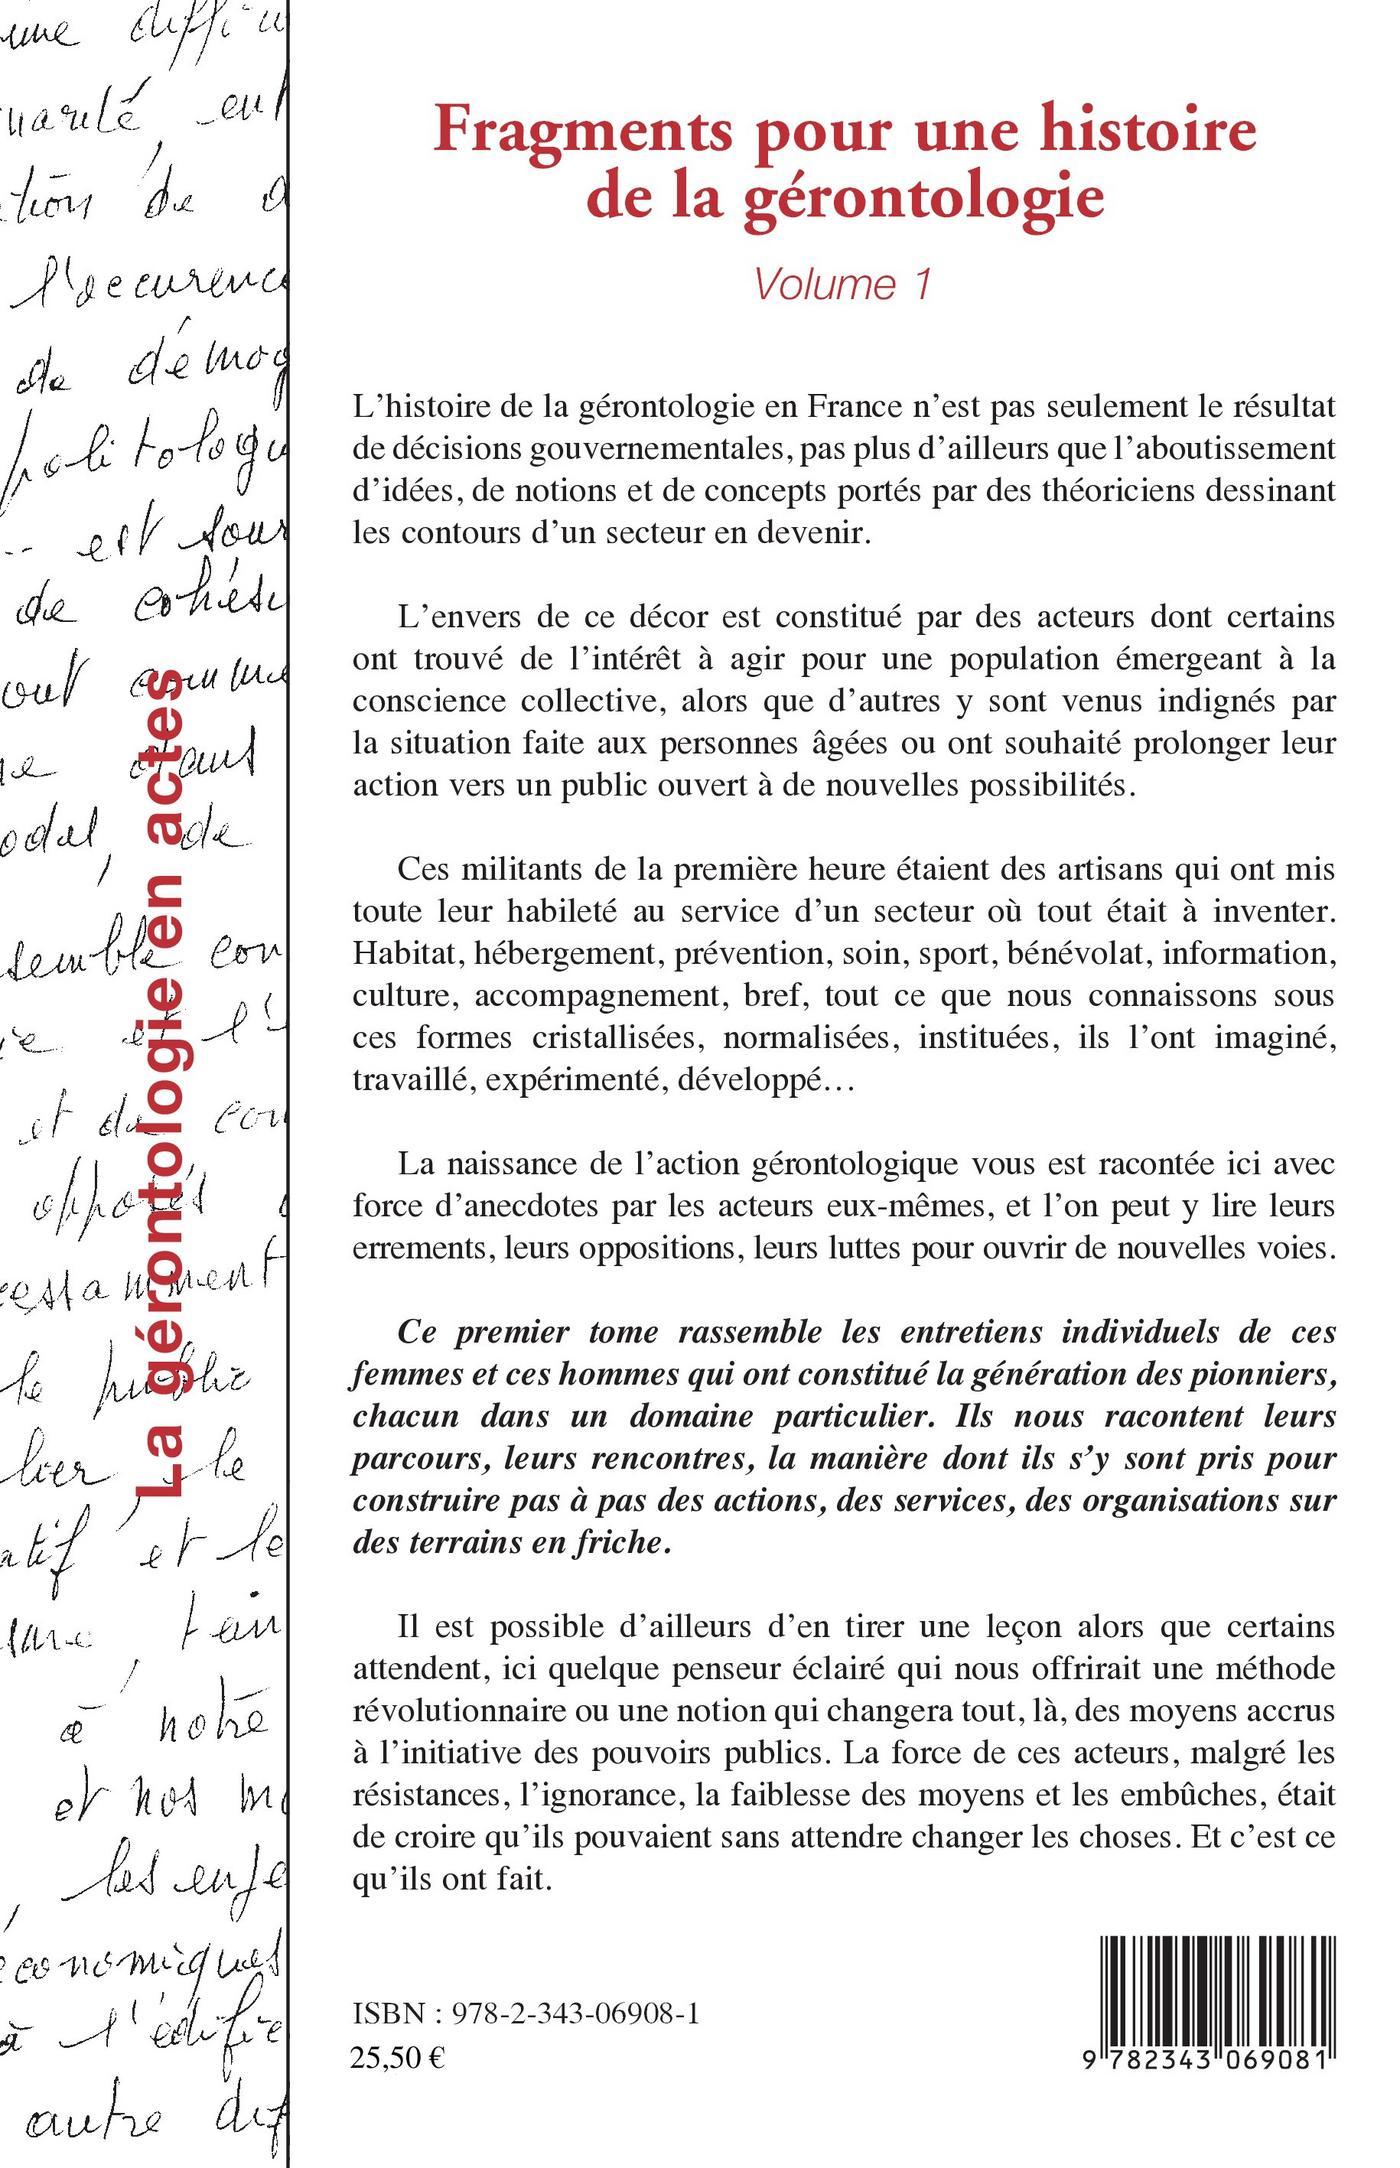 Fragments pour une histoire
de la gérontologie
Volume 1
L’histoire de la gérontologie en France n’est pas seulement le résultat
de décisions gouvernementales, pas plus d’ailleurs que l’aboutissement
d’idées, de notions et de concepts portés par des théoriciens dessinant
les contours d’un secteur en devenir.
L’envers de ce décor est constitué par des acteurs dont certains
ont trouvé de l’intérêt à agir pour une population émergeant à la
conscience collective, alors que d’autres y sont venus indignés par
la situation faite aux personnes âgées ou ont souhaité prolonger leur
action vers un public ouvert à de nouvelles possibilités.
Ces militants de la première heure étaient des artisans qui ont mis
toute leur habileté au service d’un secteur où tout était à inventer.
Habitat, hébergement, prévention, soin, sport, bénévolat, information,
culture, accompagnement, bref, tout ce que nous connaissons sous
ces formes cristallisées, normalisées, instituées, ils l’ont imaginé,
travaillé, expérimenté, développé…
La naissance de l’action gérontologique vous est racontée ici avec
force d’anecdotes par les acteurs eux-mêmes, et l’on peut y lire leurs
errements, leurs oppositions, leurs luttes pour ouvrir de nouvelles voies.
Ce premier tome rassemble les entretiens individuels de ces
femmes et ces hommes qui ont constitué la génération des pionniers,
chacun dans un domaine particulier. Ils nous racontent leurs
parcours, leurs rencontres, la manière dont ils s’y sont pris pour
construire pas à pas des actions, des services, des organisations sur
des terrains en friche.
Il est possible d’ailleurs d’en tirer une leçon alors que certains
attendent, ici quelque penseur éclairé qui nous offrirait une méthode
révolutionnaire ou une notion qui changera tout, là, des moyens accrus
à l’initiative des pouvoirs publics. La force de ces acteurs, malgré les
résistances, l’ignorance, la faiblesse des moyens et les embûches, était
de croire qu’ils pouvaient sans attendre changer les choses. Et c’est ce
qu’ils ont fait.
ISBN : 978-2-343-06908-1
25,50 €
9 782343 069081
La gérontologie en actes
de
est
de
de
et de
le public
le
et le
à notre
et nos
les
économiques
autre